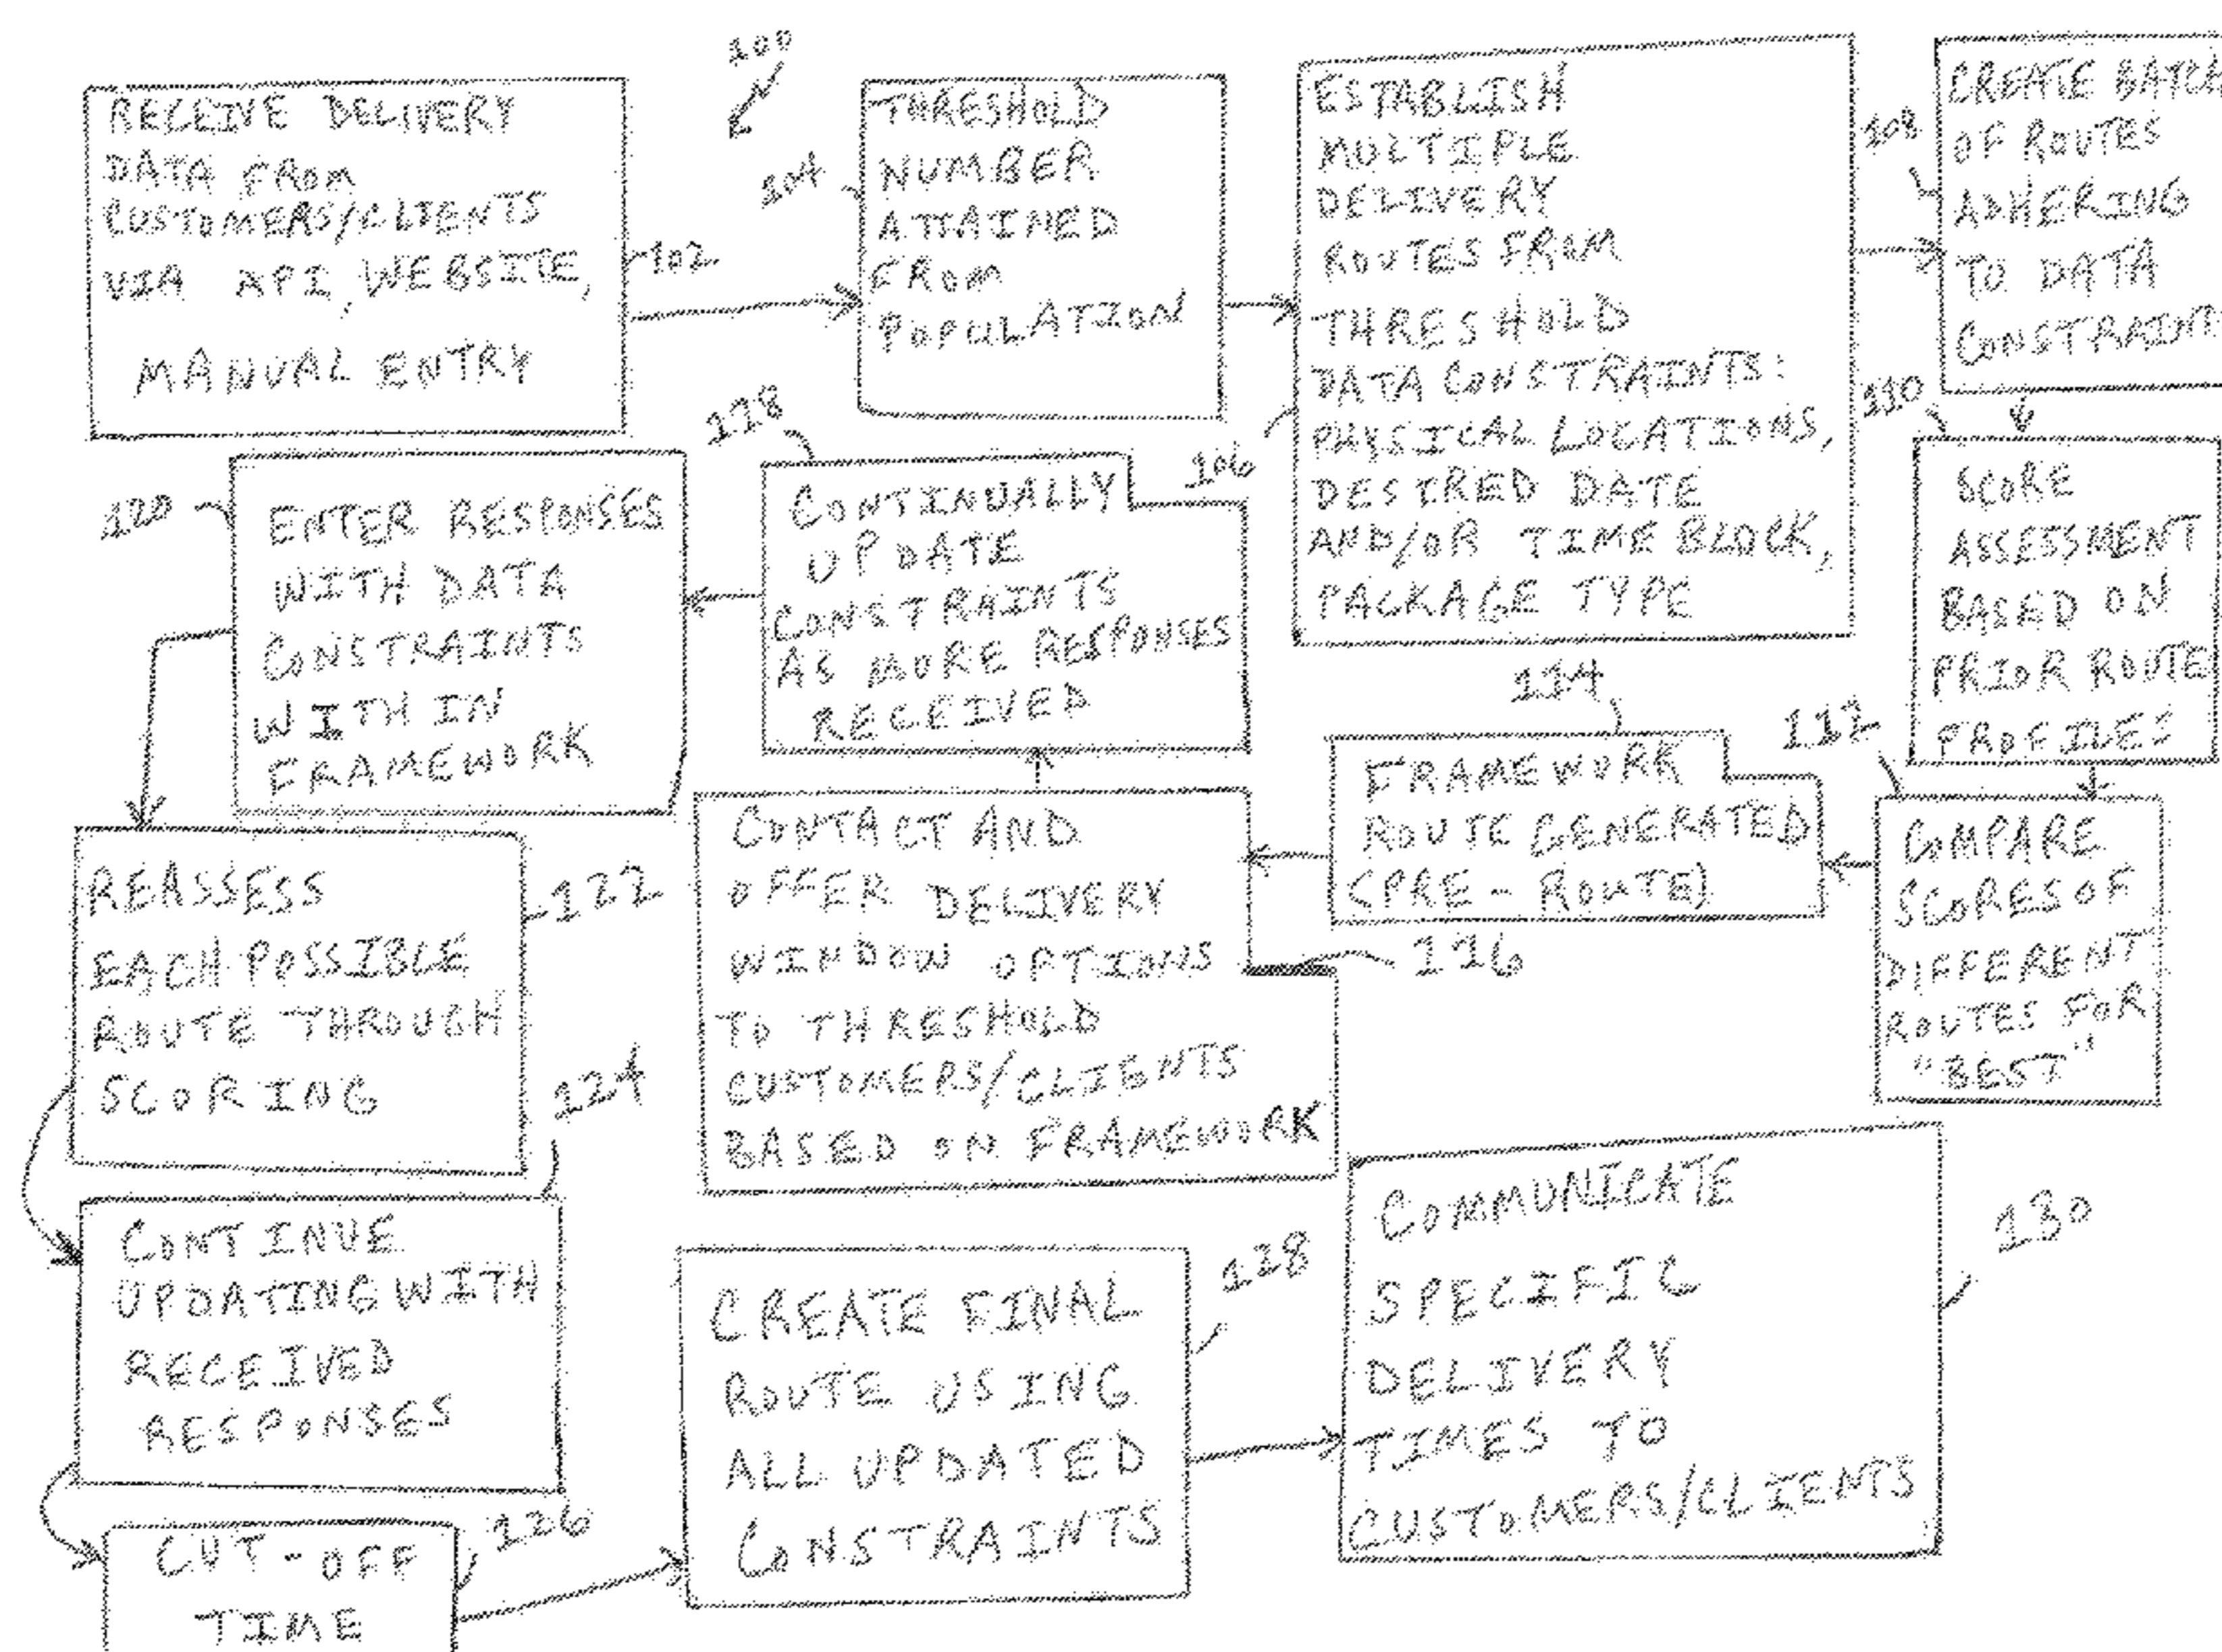 100
RECEIVE DELIVERY
DATA FROM
CUSTOMERS/CLIENTS
VIA API, WEBSITE,
MANUAL ENTRY
102
104
THRESHOLD
NUMBER
ATTAINED
FROM
POPULATION
106
ESTABLISH
MULTIPLE
DELIVERY
ROUTES FROM
THRESHOLD
DATA CONSTRAINTS:
PHYSICAL LOCATIONS,
DESIRED DATE
AND/OR TIME BLOCK,
PACKAGE TYPE
108
CREATE BATCH
OF ROUTES
ADHERING
TO DATA
CONSTRAINT
110
SCORE
ASSESSMENT
BASED ON
PRIOR ROUTE
PROFILES
112
COMPARE
SCORES OF
DIFFERENT
ROUTES FOR
"BEST"
114
FRAMEWORK
ROUTE GENERATED
(PRE-ROUTE)
116
CONTACT AND
OFFER DELIVERY
WINDOW OPTIONS
TO THRESHOLD
CUSTOMERS/CLIENTS
BASED ON FRAMEWORK
118
CONTINUALLY
UPDATE
CONSTRAINTS
AS MORE RESPONSES
RECEIVED
120
ENTER RESPONSES
WITH DATA
CONSTRAINTS
WITH IN
FRAMEWORK
122
REASSESS
EACH POSSIBLE
ROUTE THROUGH
SCORING
124
CONTINUE
UPDATING WITH
RECEIVED
RESPONSES
126
CUT-OFF
TIME
128
CREATE FINAL
ROUTE USING
ALL UPDATED
CONSTRAINTS
130
COMMUNICATE
SPECIFIC
DELIVERY
TIMES TO
CUSTOMERS/CLIENTS